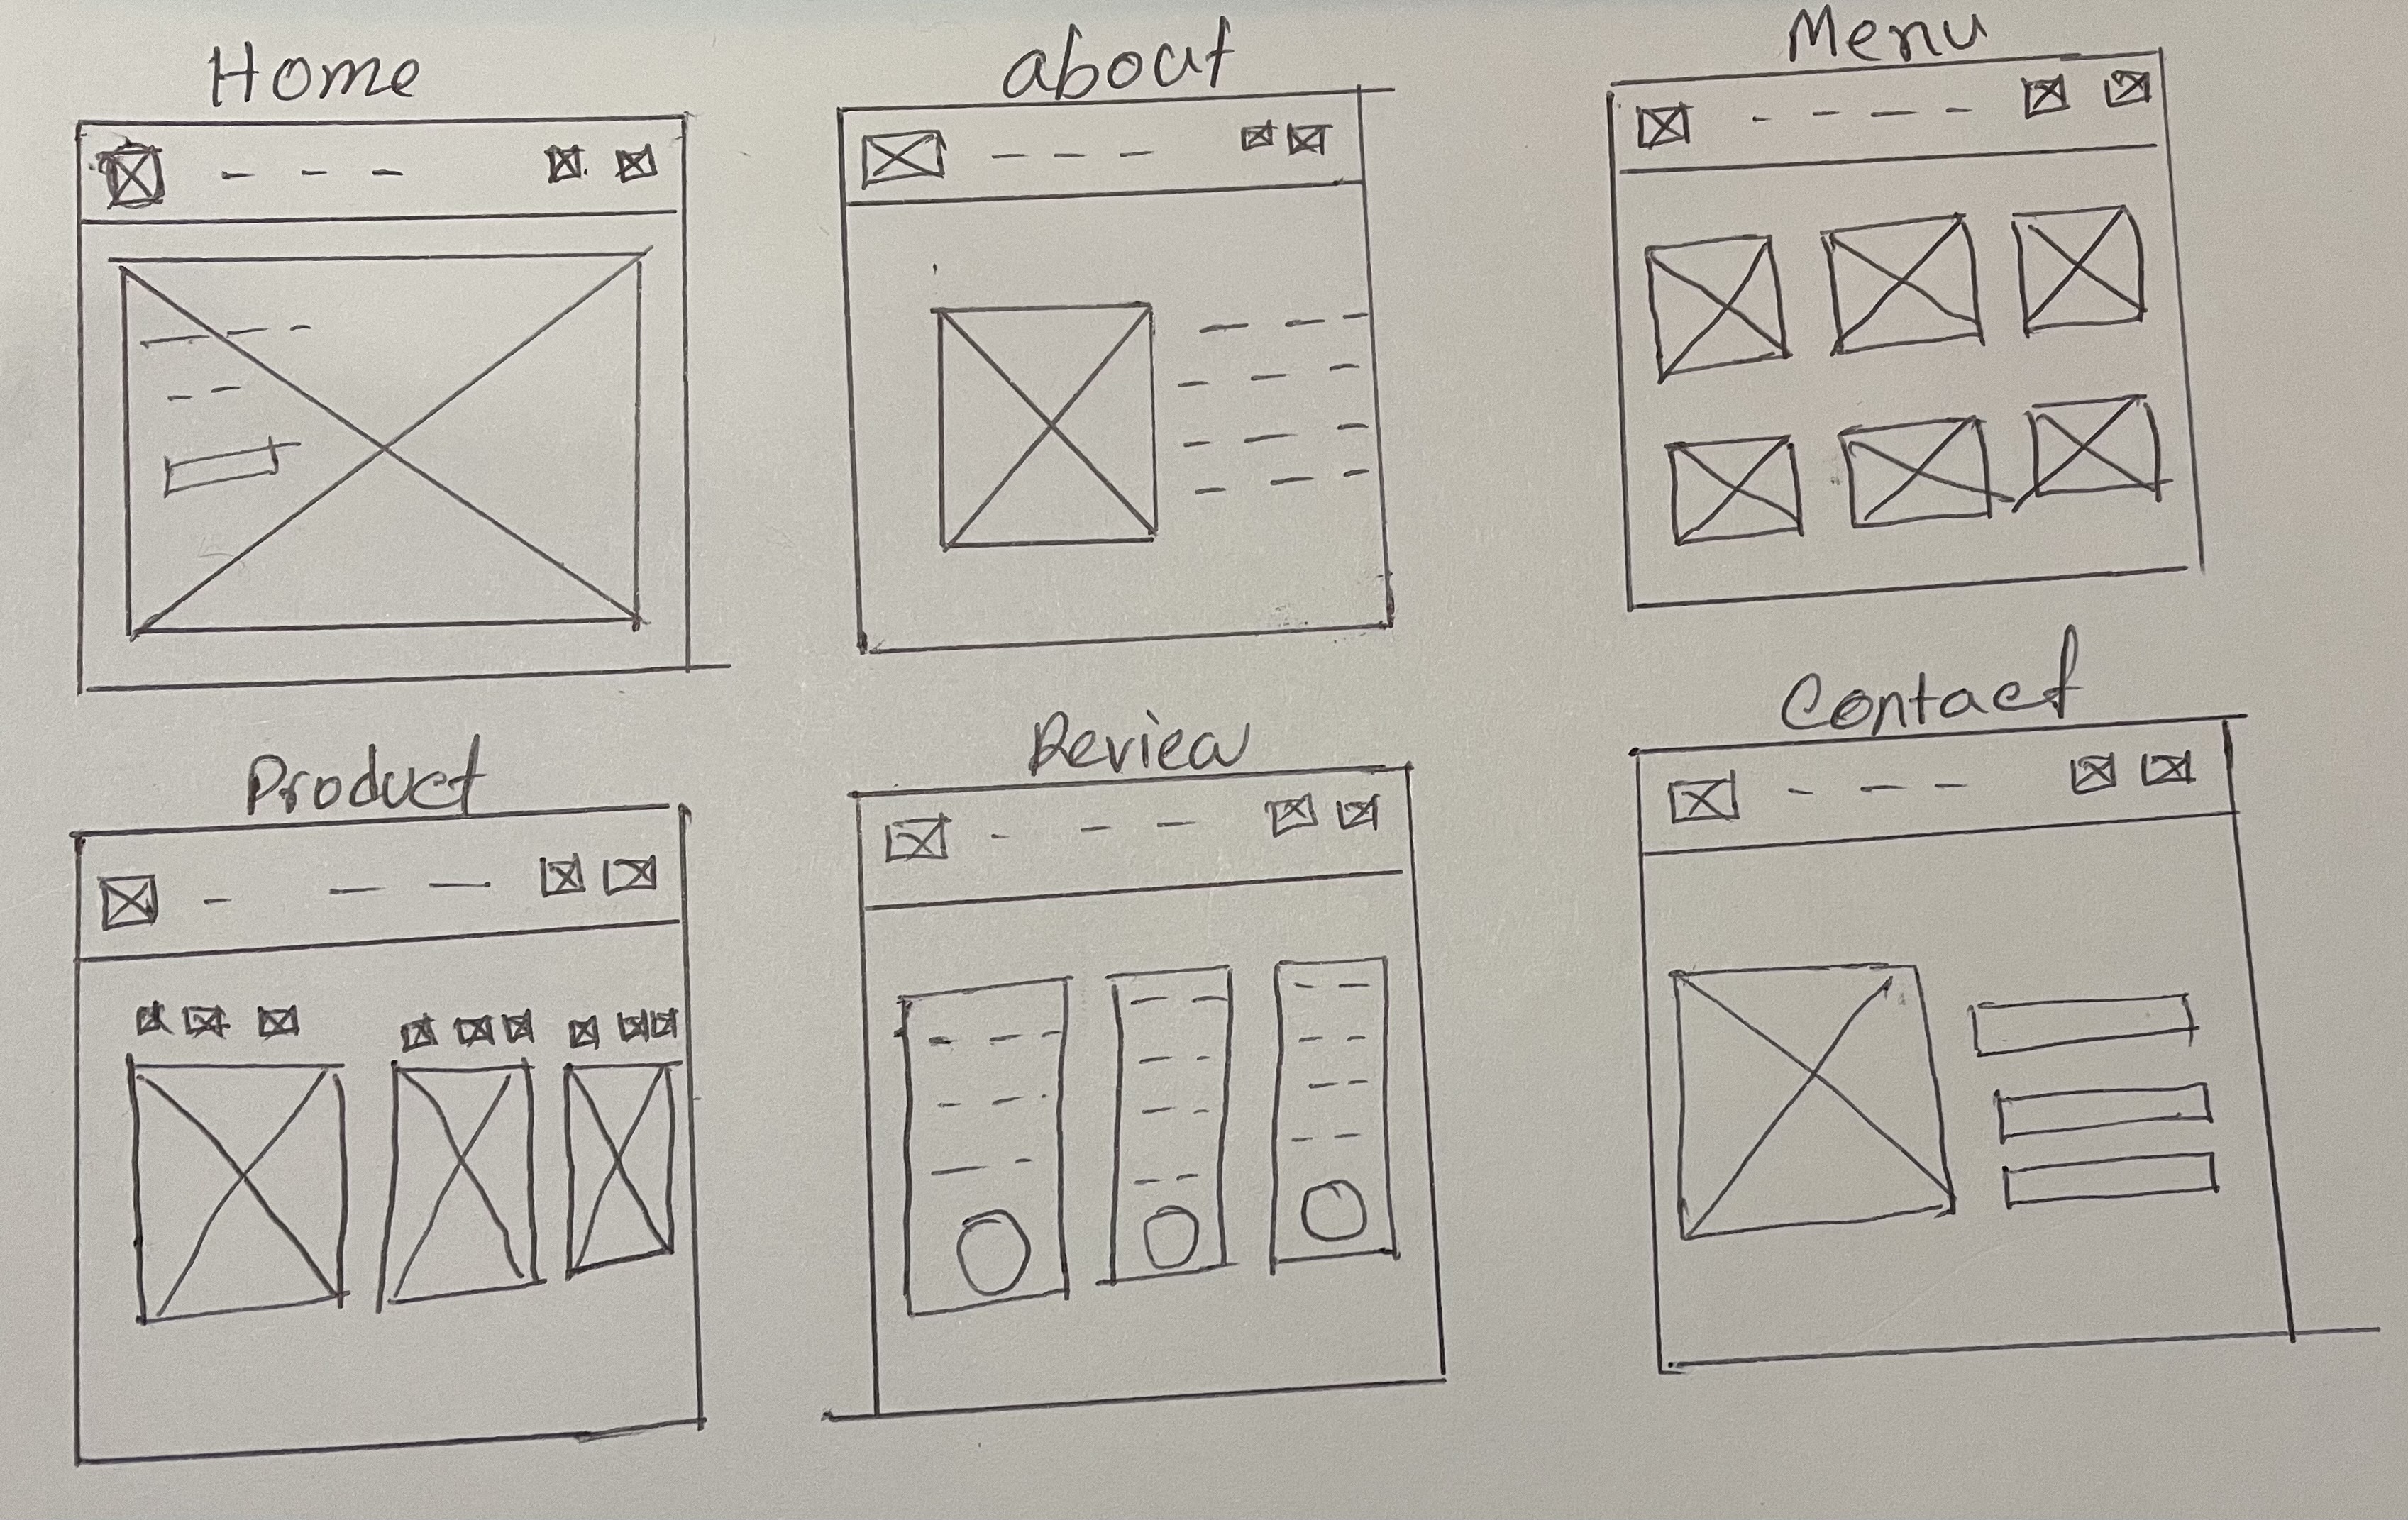 Home
about
Menu
Product
Review
Contact